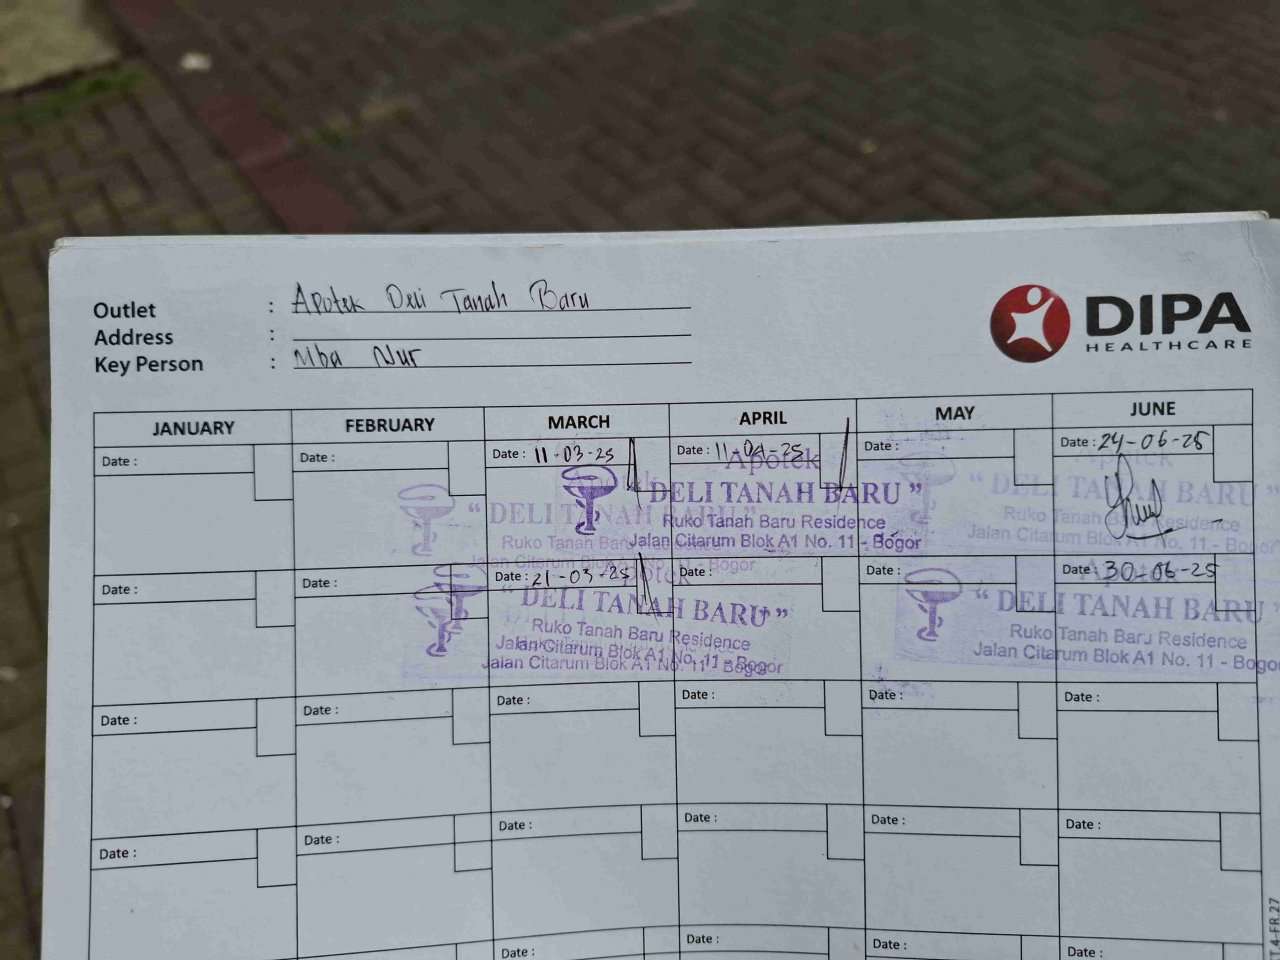 Outlet : Apotek Deli Tanah Baru
Address :
Key Person : Mba Nur
DIPA
HEALTHCARE
JANUARY FEBRUARY MARCH APRIL MAY JUNE
Date : Date : Date : 11-03-25 Date : 11-04-25 Date : Date : 24-06-25
Apotek
" DELI TANAH BARU "
Ruko Tanah Baru Residence
Jalan Citarum Blok A1 No. 11 - Bogor
" DELI TANAH BARU "
Ruko Tanah Baru Residence
Jalan Citarum Blok A1 No. 11 - Bogor
Apotek
" DELI TANAH BARU "
Ruko Tanah Baru Residence
Jalan Citarum Blok A1 No. 11 - Bogor
Date : Date : Date : 21-03-25 Date : Date : Date : 30-06-25
" DELI TANAH BARU "
Ruko Tanah Baru Residence
Jalan Citarum Blok A1 No. 11 - Bogor
Jalan Citarum Blok A1 No. 11 - Bogor
Apotek
" DELI TANAH BARU "
Ruko Tanah Baru Residence
Jalan Citarum Blok A1 No. 11 - Bogor
Date : Date : Date : Date : Date : Date :
Date : Date : Date : Date : Date : Date :
Date : Date : Date : Date :
4-FR 27